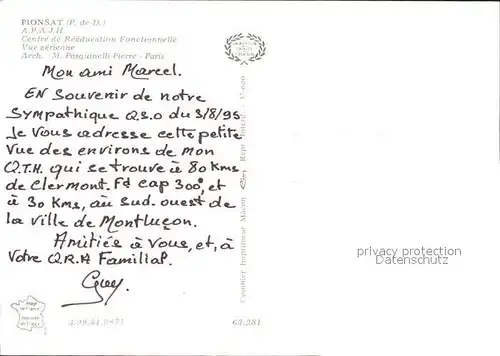 PIONSAT (P. de-D.)
A.P.A.J.H.
Centre de Rééducation Fonctionnelle
Vue aérienne
Arch. M. Pasquinelli Pierre - Paris
Mon ami Marcel.
EN Souvenir de notre
Sympathique Q.S.O du 3/8/95
Je Vous adresse cette petite
Vue des environs de mon
Q.T.H. qui se trouve à 80 Kms
de Clermont. Fd cap 300°, et
à 30 Kms, au sud. ouest de
la ville de Montluçon.
Amitiés à Vous, et, à
Votre Q.R.A Familial.
Guy.
Combier Imprimeur Macon
3.99.81.9871
63.281
privacy protection
Datenschutz